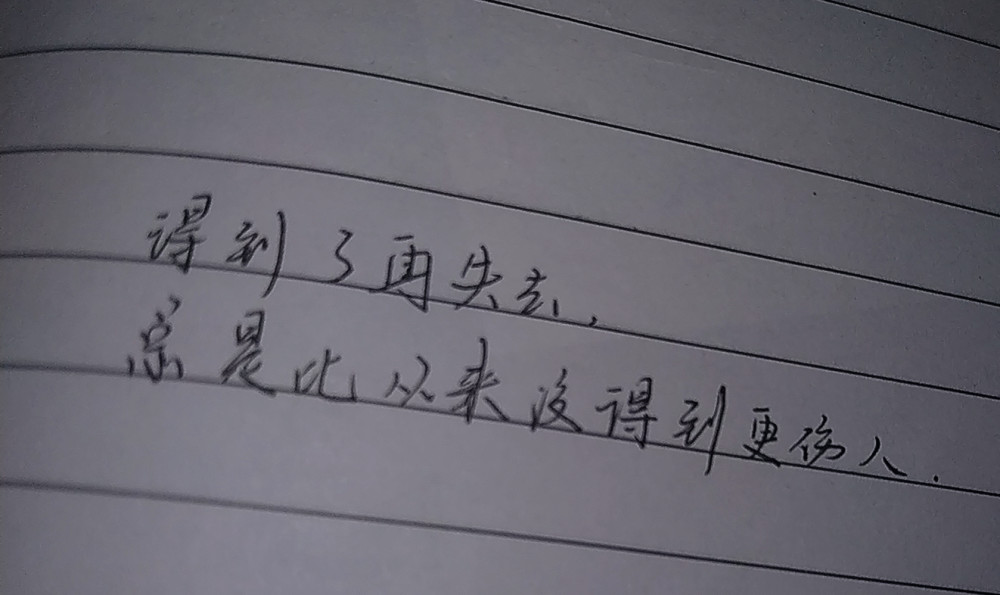 得到了再失去，
总是比从来没得到更伤人.